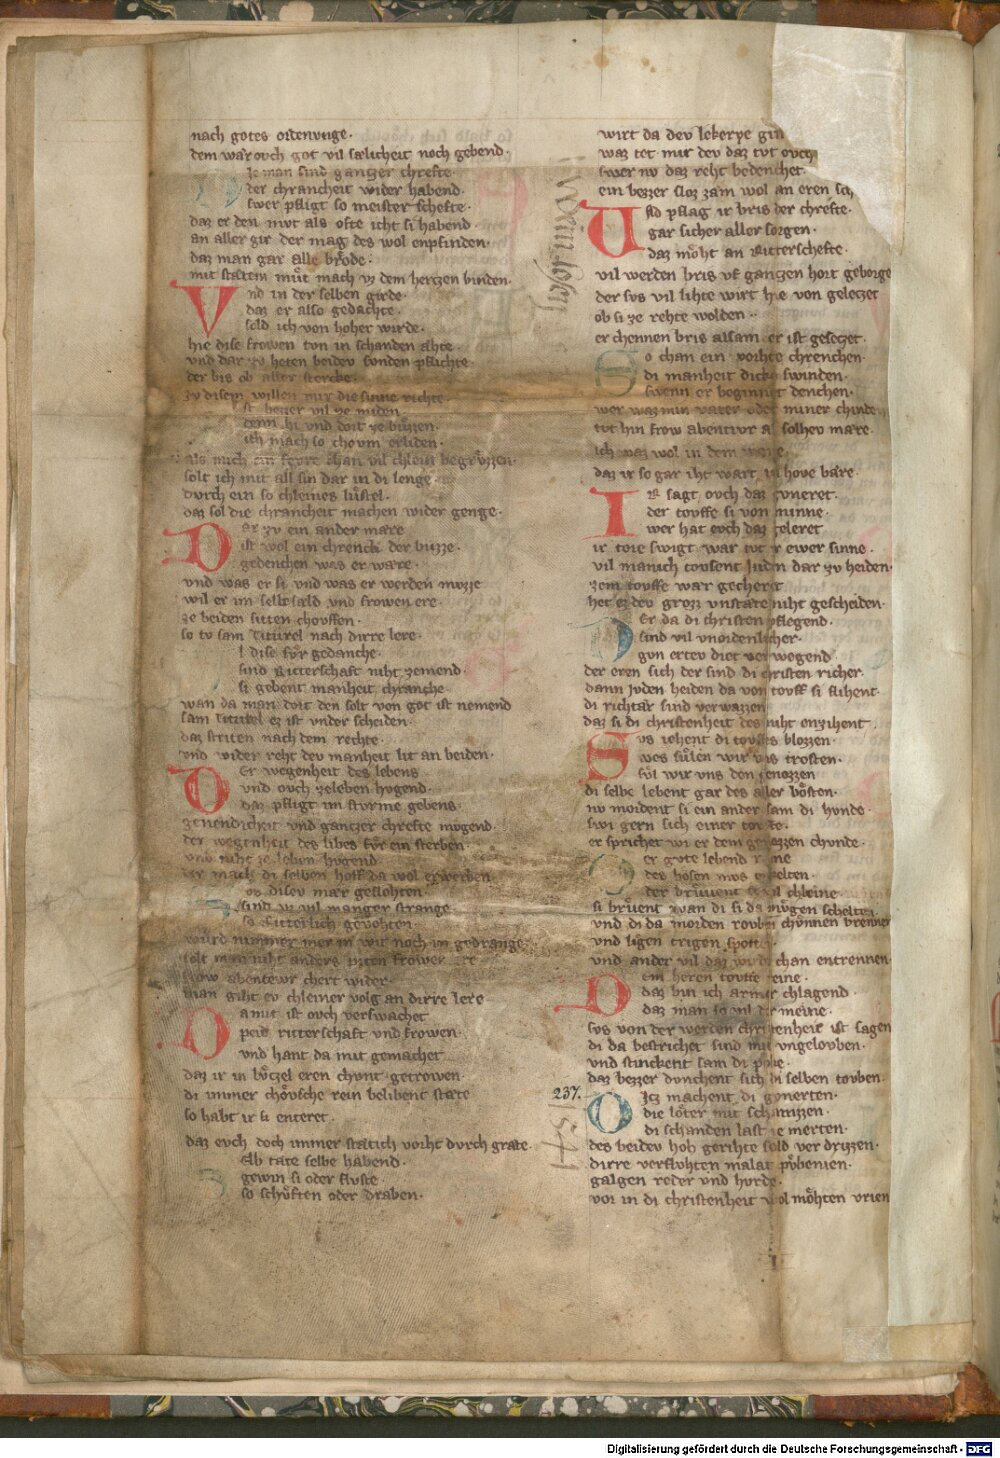 nach gotes ordenvnge.
dem wær ovch got vil sælicheit noch gebend.
Je man sind gantzer chrefte.
der chrancheit wider habend.
swer pfligt so meister schefte.
daz er den mvt als ofte icht si habend
an aller gir der mag des wol enpfinden.
daz man gar alle brode.
mit stætem mvt mach vz dem hertzen binden.
Vnd in der selben girde
daz er also gedachte.
sold ich von hoher wirde.
hie dise frowen ton in schanden ahte
vnd dar zv heten beidev sonden pflichte.
der bis ob aller stercke.
zv disem willen mir die sinne richte.
ist bezzer vil ze miden
denn hi vnd dort ze bvzzen.
ich mach so chovm erliden.
als mich ein fevre chan vil chlein begrvzzen.
solt ich mit all sin dar in di lenge
dvrch ein so chleines lvstel.
daz sol die chrancheit machen wider genge.
Dar zv ein ander mære
ist wol ein chrenck der bvzze.
gedenchen was er wære.
vnd was er si vnd was er werden mvzze
wil er im selb sæld vnd frowen ere.
ze beiden siten chovffen.
so tv sam Titurel nach dirre lere.
dise fvr gedanche.
sind Ritterschaft niht zemend.
si gebent manheit chranche
wan da man dort den solt von got ist nemend
sam Titurel ez ist vnder scheiden.
daz striten nach dem rechte.
vnd wider reht dev manheit lit an beiden.
Der wegenheit des lebens
vnd ovch zeleben hvgend.
daz pfligt im stvrme gebens.
genendicheit vnd gantzer chrefte mvgend.
der wegenheit des libes fvr ein sterben.
vnd niht ze leben hvgend
der mach di selben hoff da wol erwerben.
ob disev mær geflohten.
sind vz vil manger strange
so Ritterlich gevohten.
wurd nimmer mer in wit noch in gedrange
solt man niht anders priten frowen ere
frow abentewr chert wider.
man giht ev chleiner volg an dirre lere
Damit ist ovch verswachet
peid ritterschaft vnd frowen.
vnd hant da mit gemachet
daz ir in lvtzel eren chvnt getrowen.
di immer chovsche rein belibent stæte
so habt ir si enteret.
daz evch doch immer stætich vorht dvrch græte.
Ab tæte selbe habend.
gewin si oder flvste.
so schvften oder draben.
wirt da dev lekerye gin
waz tet mir dev daz tvt ovch
swer nv daz reht bedenchet.
ein bezzer sloz zam wol an eren
Vsld pflag ir bris der chrefte.
gar sicher aller sorgen.
daz moht an Ritterschefte.
vil werden bris vf gantzen hort geborge
der svs vil lihte wirt hie von geletzet
ob si ze rehte wolden.
er chennen bris allsam er ist gesetzet.
So chan ein vorhte chrenchen.
di manheit dicke swinden.
swenn er beginnet denchen.
wer waz min vater oder miner chinde
tvt hin frow abentivr al solhev mære.
ich waz wol in dem wane
daz ir so gar iht wart in hove bære.
Ir sagt ovch daz gvneret.
der tovffe si von minne.
wer hat evch daz geleret
ir tore swigt war tvt ir ewer sinne.
vil manich tovsent Jvden dar zv heiden.
zem tovffe war gecheret
het ez dev grozz vnstæte niht gescheiden.
Der da di christen pflegend.
sind vil vnordenlicher.
gvn ertev diet verwegend
der eren sich der sind di christen richer.
dann Jvden heiden da von tovff si flihent.
di richtær sind verwazzen
daz si di christenheit des niht enzihent.
Svs iehent di tovffes blozzen.
wes svlen wir vns trosten.
svl wir vns den genozzen
di selbe lebent gar des aller bosten.
nv mordent si ein ander sam di hvnde.
swi gern sich einer tovfte.
er sprichet wi er dem genozzen chvnde.
er gvte lebend reine
des hosen mvs engelten.
der brivvent er vil chleine
si brvent wan di si da mvgen schelten
vnd di da morden rovben chvnnen brennen
vnd ligen trigen spotten.
vnd ander vil daz wirde chan entrennen
Dem heren tovffe reine.
daz bin ich armer chlagend.
daz man so vil der meine.
svs von der werden christenheit ist sagen
di da bestrichet sind mit vngelovben.
vnd stinckent sam di pvlle.
daz bezzer dvnchent sich di selben tovben.
237.
Ditz machent di gvnerten.
die loter mit schatzzen.
di schanden last ie merten.
des beidev hob gerihte sold verdrizzen.
dirre verflvhten malat pvbenien.
galgen reder vnd hvrde.
vor in di christenheit wol mohten vrien
Digitalisierung gefördert durch die Deutsche Forschungsgemeinschaft - DFG